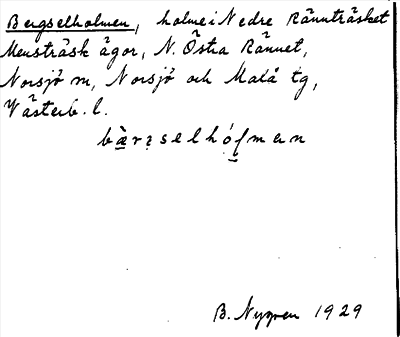 Bergselholmen, holme i Nedre Rännträsket
Mensträsk ägor, N. Östra Rännet,
Norsjö sn, Norsjö och Malå tg,
Västerb. l.
B. Nygren 1929